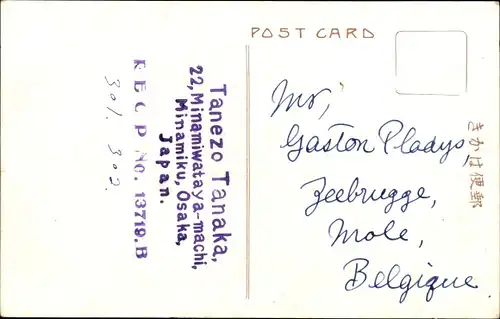 POST CARD
Tanezo Tanaka,
22, Minamiwataya-machi,
Minamiku, Osaka,
Japan.
R E C P No. 13719.B
301. 302
Mr,
Gaston Pladys,
Zeebrugge,
Mole,
Belgique
きかは便郵